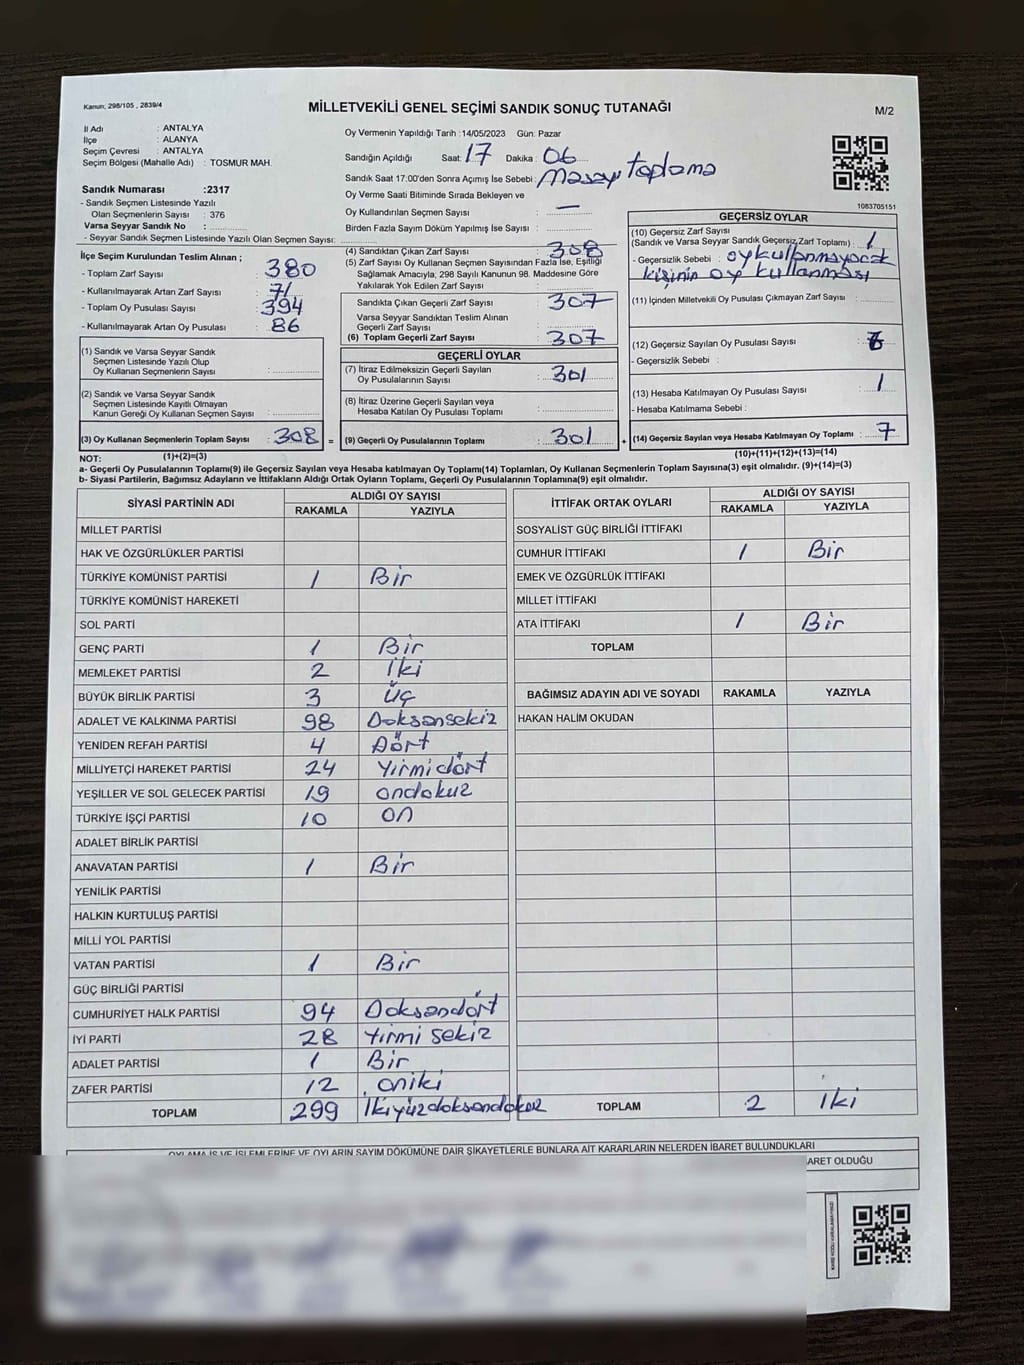 Kanun; 298/105 , 2839/4
MİLLETVEKİLİ GENEL SEÇİMİ SANDIK SONUÇ TUTANAĞI
M/2
İl Adı : ANTALYA
İlçe : ALANYA
Seçim Çevresi : ANTALYA
Seçim Bölgesi (Mahalle Adı) : TOSMUR MAH.
Sandık Numarası :2317
- Sandık Seçmen Listesinde Yazılı
Olan Seçmenlerin Sayısı : 376
Varsa Seyyar Sandık No :
- Seyyar Sandık Seçmen Listesinde Yazılı Olan Seçmen Sayısı:
Oy Vermenin Yapıldığı Tarih :14/05/2023 Gün: Pazar
Sandığın Açıldığı Saat: 17 Dakika : 06
Sandık Saat 17:00'den Sonra Açımış İse Sebebi : Masayı toplama
Oy Verme Saati Bitiminde Sırada Bekleyen ve
Oy Kullandırılan Seçmen Sayısı : —
Birden Fazla Sayım Döküm Yapılmış İse Sayısı :
1083705151
İlçe Seçim Kurulundan Teslim Alınan ;
- Toplam Zarf Sayısı : 380
- Kullanılmayarak Artan Zarf Sayısı : 71
- Toplam Oy Pusulası Sayısı : 394
- Kullanılmayarak Artan Oy Pusulası : 86
(1) Sandık ve Varsa Seyyar Sandık
Seçmen Listesinde Yazılı Olup
Oy Kullanan Seçmenlerin Sayısı :
(2) Sandık ve Varsa Seyyar Sandık
Seçmen Listesinde Kayıtlı Olmayan
Kanun Gereği Oy Kullanan Seçmen Sayısı :
(3) Oy Kullanan Seçmenlerin Toplam Sayısı : 308 =
(4) Sandıktan Çıkan Zarf Sayısı : 308
(5) Zarf Sayısı Oy Kullanan Seçmen Sayısından Fazla İse, Eşitliği
Sağlamak Amacıyla, 298 Sayılı Kanunun 98. Maddesine Göre
Yakılarak Yok Edilen Zarf Sayısı :
Sandıkta Çıkan Geçerli Zarf Sayısı : 307
Varsa Seyyar Sandıktan Teslim Alınan
Geçerli Zarf Sayısı :
(6) Toplam Geçerli Zarf Sayısı : 307
GEÇERLİ OYLAR
(7) İtiraz Edilmeksizin Geçerli Sayılan
Oy Pusulalarının Sayısı : 301
(8) İtiraz Üzerine Geçerli Sayılan veya
Hesaba Katılan Oy Pusulası Toplamı :
(9) Geçerli Oy Pusulalarının Toplamı : 301 +
GEÇERSİZ OYLAR
(10) Geçersiz Zarf Sayısı
(Sandık ve Varsa Seyyar Sandık Geçersiz Zarf Toplamı) : 1
- Geçersizlik Sebebi : oy kullanmayacak
kişinin oy kullanması
(11) İçinden Milletvekili Oy Pusulası Çıkmayan Zarf Sayısı :
(12) Geçersiz Sayılan Oy Pusulası Sayısı :
- Geçersizlik Sebebi :
(13) Hesaba Katılmayan Oy Pusulası Sayısı : 1
- Hesaba Katılmama Sebebi :
(14) Geçersiz Sayılan veya Hesaba Katılmayan Oy Toplamı : 7
NOT: (1)+(2)=(3)
(10)+(11)+(12)+(13)=(14)
a- Geçerli Oy Pusulalarının Toplamı(9) ile Geçersiz Sayılan veya Hesaba katılmayan Oy Toplamı(14) Toplamları, Oy Kullanan Seçmenlerin Toplam Sayısına(3) eşit olmalıdır. (9)+(14)=(3)
b- Siyasi Partilerin, Bağımsız Adayların ve İttifakların Aldığı Ortak Oyların Toplamı, Geçerli Oy Pusulalarının Toplamına(9) eşit olmalıdır.
SİYASİ PARTİNİN ADI ALDIĞI OY SAYISI
RAKAMLA YAZIYLA
MİLLET PARTİSİ
HAK VE ÖZGÜRLÜKLER PARTİSİ
TÜRKİYE KOMÜNİST PARTİSİ 1 Bir
TÜRKİYE KOMÜNİST HAREKETİ
SOL PARTİ
GENÇ PARTİ 1 Bir
MEMLEKET PARTİSİ 2 İki
BÜYÜK BİRLİK PARTİSİ 3 Üç
ADALET VE KALKINMA PARTİSİ 98 Doksansekiz
YENİDEN REFAH PARTİSİ 4 Dört
MİLLİYETÇİ HAREKET PARTİSİ 24 Yirmidört
YEŞİLLER VE SOL GELECEK PARTİSİ 19 ondokuz
TÜRKİYE İŞÇİ PARTİSİ 10 on
ADALET BİRLİK PARTİSİ
ANAVATAN PARTİSİ 1 Bir
YENİLİK PARTİSİ
HALKIN KURTULUŞ PARTİSİ
MİLLİ YOL PARTİSİ
VATAN PARTİSİ 1 Bir
GÜÇ BİRLİĞİ PARTİSİ
CUMHURİYET HALK PARTİSİ 94 Doksandört
İYİ PARTİ 28 Yirmi sekiz
ADALET PARTİSİ 1 Bir
ZAFER PARTİSİ 12 oniki
TOPLAM 299 İkiyüzdoksandokuz
İTTİFAK ORTAK OYLARI ALDIĞI OY SAYISI
RAKAMLA YAZIYLA
SOSYALİST GÜÇ BİRLİĞİ İTTİFAKI
CUMHUR İTTİFAKI 1 Bir
EMEK VE ÖZGÜRLÜK İTTİFAKI
MİLLET İTTİFAKI
ATA İTTİFAKI 1 Bir
TOPLAM
BAĞIMSIZ ADAYIN ADI VE SOYADI RAKAMLA YAZIYLA
HAKAN HALİM OKUDAN
TOPLAM 2 İki
OYLAMA İŞ VE İŞLEMLERİNE VE OYLARIN SAYIM DÖKÜMÜNE DAİR ŞİKAYETLERLE BUNLARA AİT KARARLARIN NELERDEN İBARET BULUNDUKLARI
ARET OLDUĞU